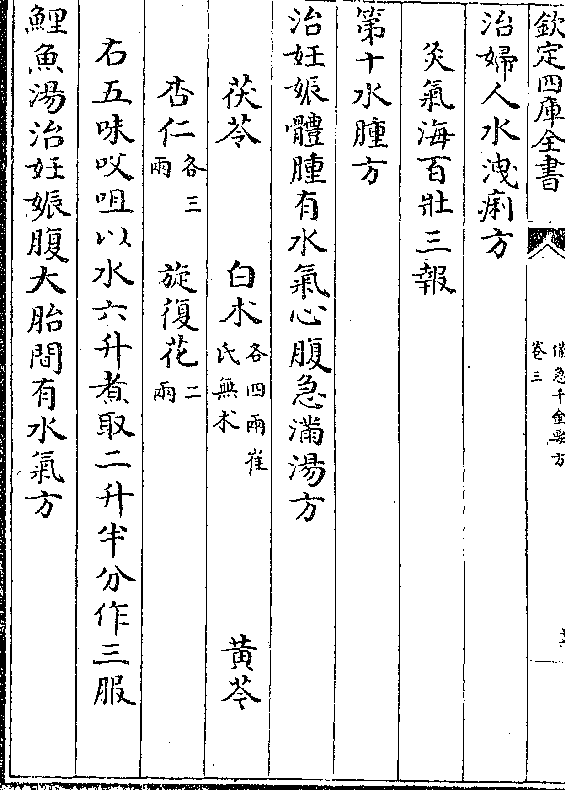 欽定四庫全書
備急千金要方
卷三
治婦人水洩痢方
灸氣海百壯三報
第十水腫方
治妊娠體腫有水氣心腹急滿湯方
茯苓　白朮各四兩崔氏無朮　黃芩
杏仁各三兩　旋復花二兩
右五味㕮咀以水六升煮取二升半分作三服
鯉魚湯治妊娠腹大胎間有水氣方